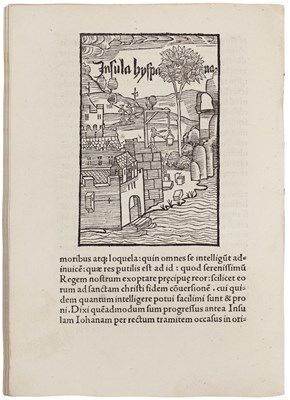 Insula hyspana
moribus atq; loquela: quin omnes se intelligũt ad-
inuicẽ: quæ res putilis est ad id: quod serenissimũ
Regem nostrum exoptare præcipue reor: scilicet eo
rum ad sanctam christi fidem cõuersionẽ. cui qui-
dem quantum intelligere potui facilimi sunt & pro
ni. Dixi quẽadmodum sum progressus antea Insu
lam Iohanam per rectum tramitem occasus in ori-